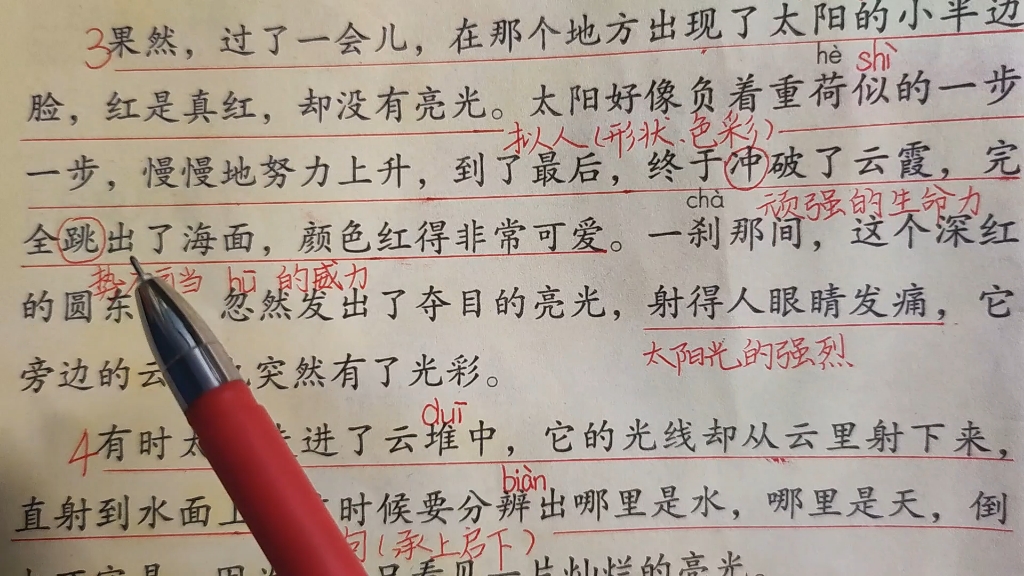 3果然，过了一会儿，在那个地方出现了太阳的小半边
hè shì
脸，红是真红，却没有亮光。太阳好像负着重荷似的一步
拟人（形状、色彩）
一步，慢慢地努力上升，到了最后，终于冲破了云霞，完
chà 顽强的生命力
全跳出了海面，颜色红得非常可爱。一刹那间，这个深红
当 hū 的威力
的圆东 忽然发出了夺目的亮光，射得人眼睛发痛，它
太阳光的强烈
旁边的云 突然有了光彩。
duī
4有时太 进了云堆中，它的光线却从云里射下来，
biàn
直射到水面上 时候要分辨出哪里是水，哪里是天，倒
句（承上启下）
只看见一片灿烂的亮光。